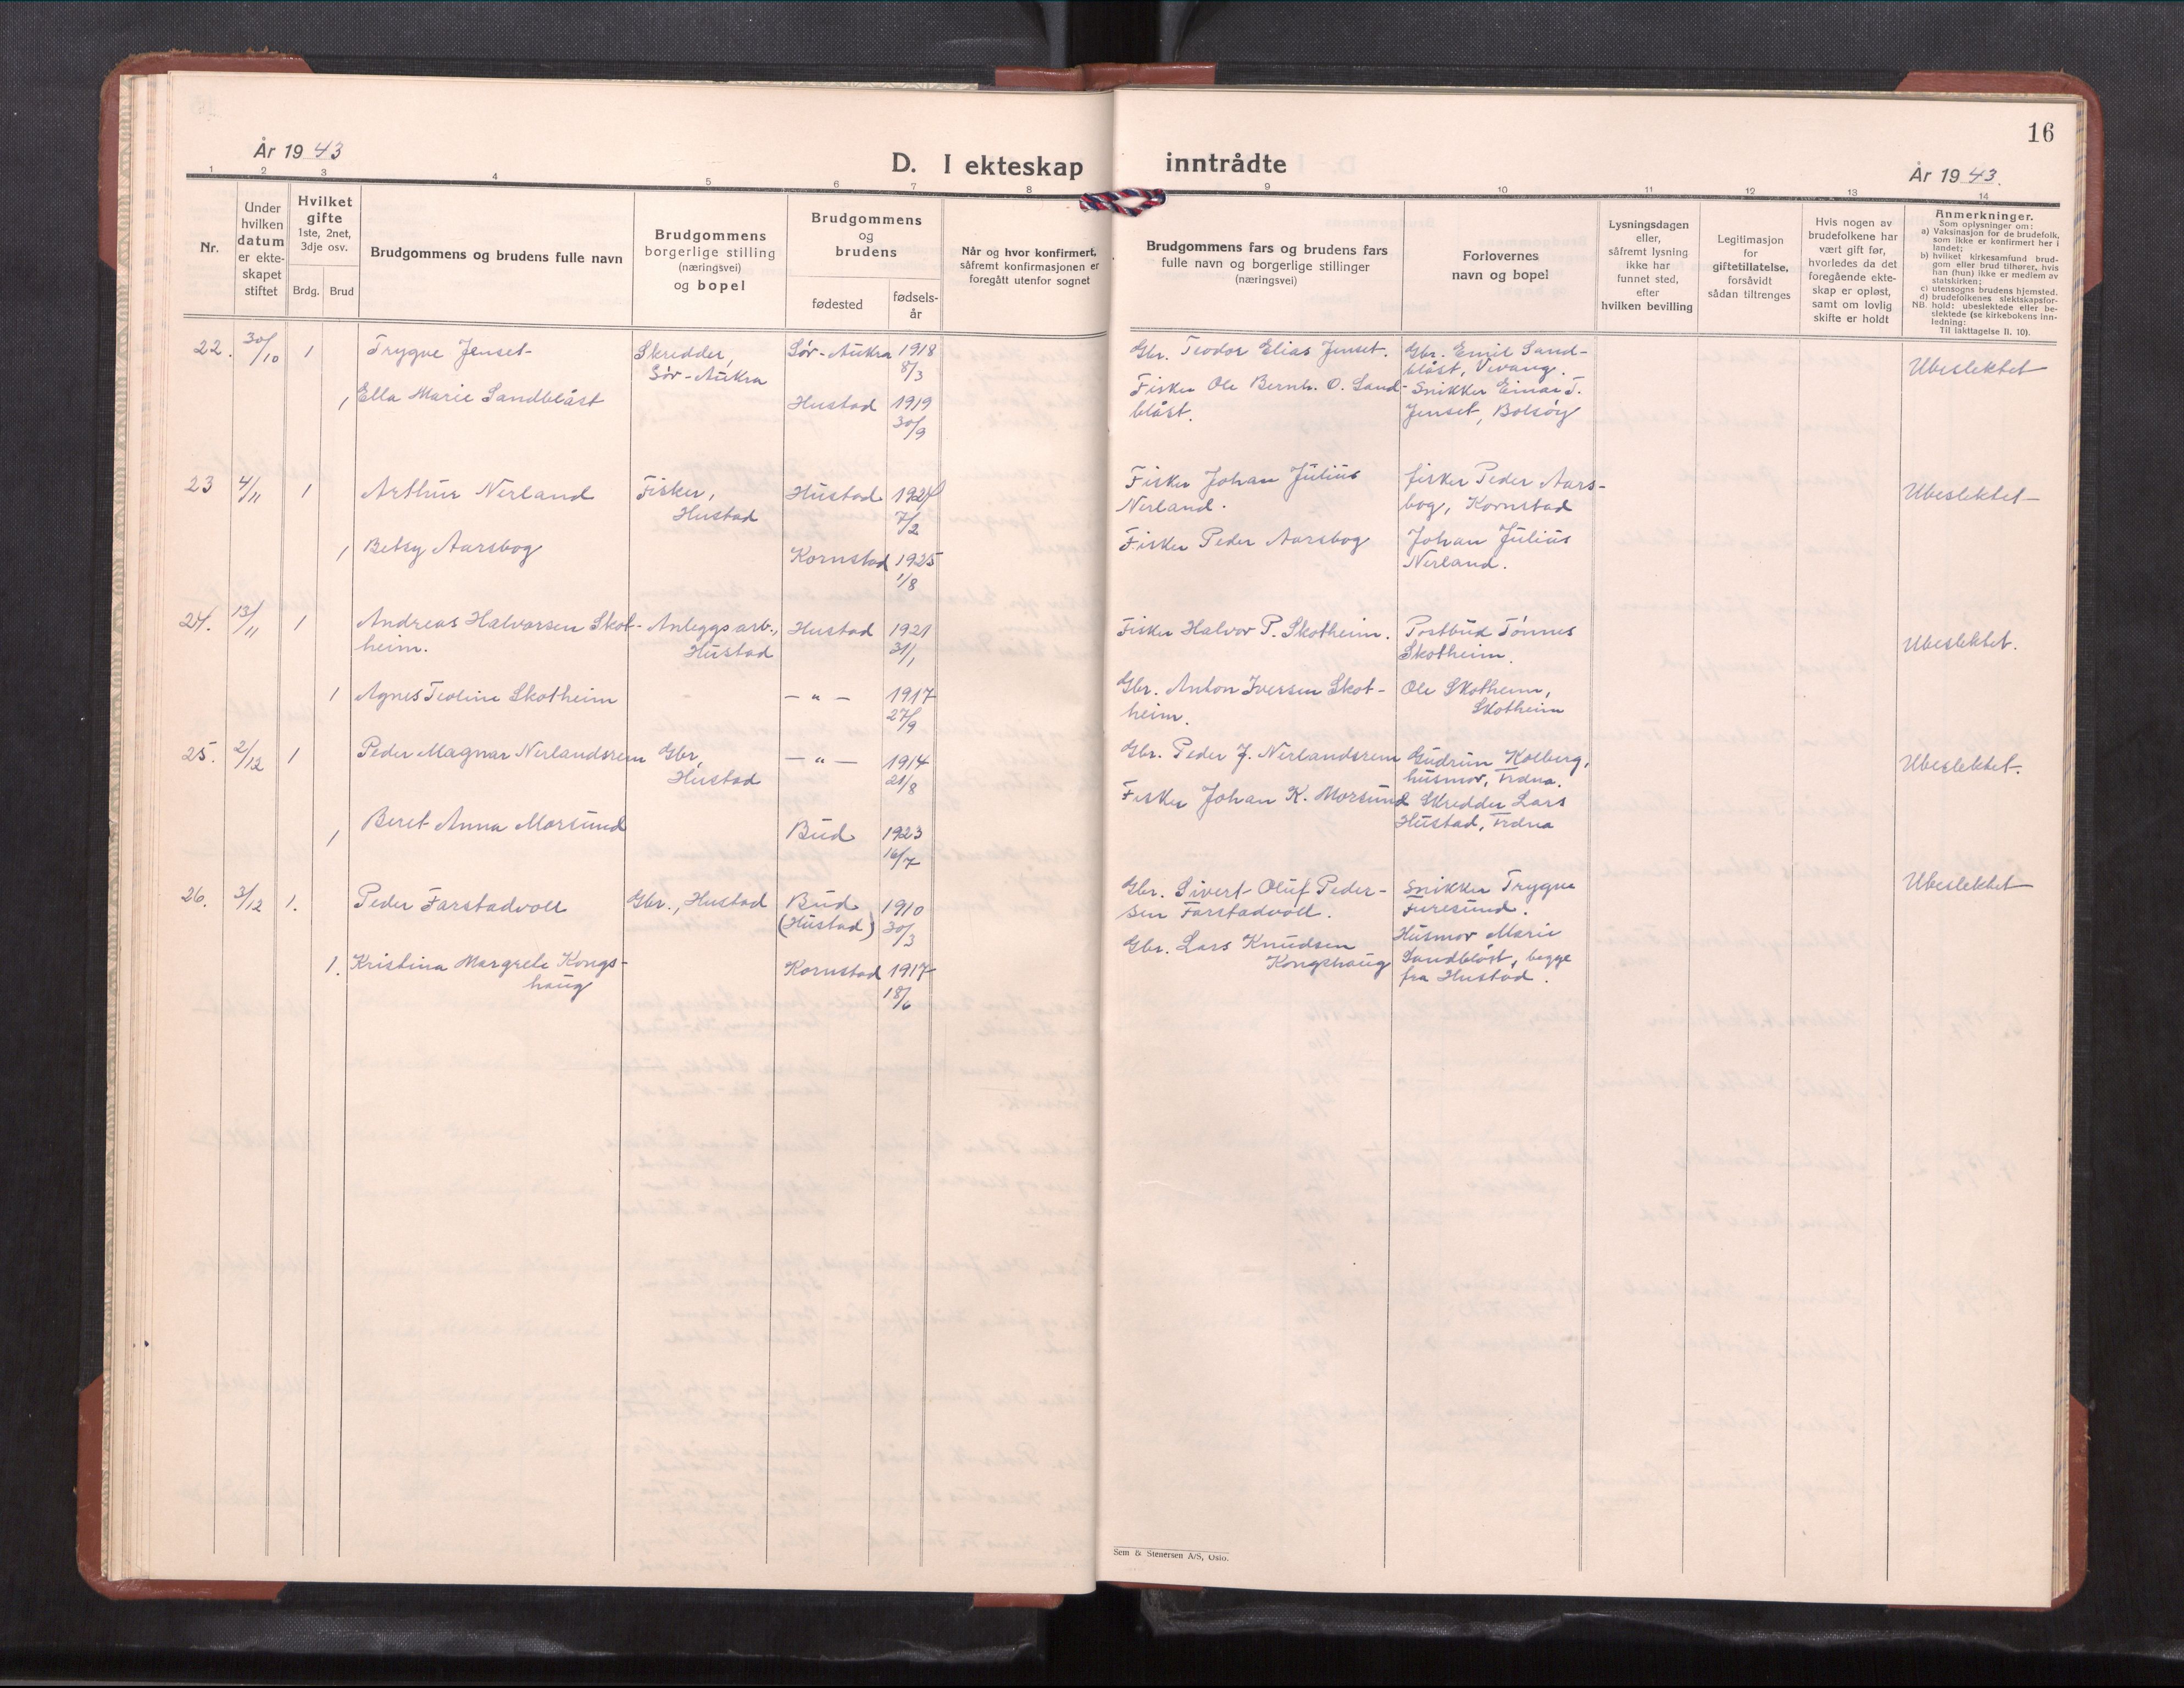 16
År 1943
D. I ekteskap inntrådte
År 1943.
1 2 3 4 5 6 7 8 9 10 11 12 13 14
Nr.
Under
hvilken
datum
er ekte-
skapet
stiftet
Hvilket
gifte
1ste, 2net,
3dje osv.
Brdg. Brud
Brudgommens og brudens fulle navn
Brudgommens
borgerlige stilling
(næringsvei)
og bopel
Brudgommens
og
brudens
fødested
fødsels-
år
Når og hvor konfirmert,
såfremt konfirmasjonen er
foregått utenfor sognet
Brudgommens fars og brudens fars
fulle navn og borgerlige stillinger
(næringsvei)
Forlovernes
navn og bopel
Lysningsdagen
eller,
såfremt lysning
ikke har
funnet sted,
efter
hvilken bevilling
Legitimasjon
for
giftetillatelse,
forsåvidt
sådan tiltrenges
Hvis nogen av
brudefolkene har
vært gift før,
hvorledes da det
foregående ekte-
skap er opløst,
samt om lovlig
skifte er holdt
Anmerkninger.
Som oplysninger om:
a) Vaksinasjon for de brudefolk,
som ikke er konfirmert her i
landet;
b) hvilket kirkesamfund brud-
gom eller brud tilhører, hvis
han (hun) ikke er medlem av
statskirken;
c) utensogns brudens hjemsted.
d) brudefolkenes slektskapsfor-
NB. hold: ubeslektede eller be-
slektede (se kirkebokens inn-
ledning:
Til iakttagelse II. 10).
22. 30/10 1 Trygve Jenset Skredder, Sør-Aukra 1918 Gbr. Teodor Elias Jenset. Gbr. Emil Sand- Ubeslektet
Sør-Aukra 8/3 blåst, Vevang.
1 Ella Marie Sandblåst Hustad 1919 Fisker Ole Bernh. O. Sand- Snikker Einar T.
30/9 blåst. Jenset, Bolsøy
23 4/11 1 Arthur Nerland Fisker, Hustad 1924 Fisker Johan Julius fisker Peder Aars- Ubeslektet
Hustad 7/2 Nerland. bog, Kornstad
1 Betsy Aarsbog Kornstad 1925 Fisker Peder Aarsbog Johan Julius
1/8 Nerland.
24. 13/11 1 Andreas Halvorsen Skot- Anleggsarb., Hustad 1921 Fisker Halvor P. Skotheim. Postbud Tønnes Ubeslektet.
heim. Hustad 31/1 Skotheim.
1 Agnes Teoline Skotheim - - " - 1917 Gbr. Anton Iversen Skot- Ole Skotheim,
27/9 heim. Skotheim
25. 2/12 1 Peder Magnar Nerlandsrem Gbr, - " - 1914 Gbr. Peder J. Nerlandsrem Gudrun Kolberg, Ubeslektet.
Hustad 21/8 husmor,
1 Beret Anna Morsund Bud 1923 Fisker Johan K. Morsund Skredder Lars
16/7 Hustad,
26. 3/12 1. Peder Farstadvoll Gbr., Hustad Bud 1910 Gbr. Sivert Oluf Peder- Snikker Trygve Ubeslektet
(Hustad) 30/3 sen Farstadvoll. Furesund.
1. Kristina Margrete Kongs- Kornstad 1917 Gbr. Lars Knudsen Husmor Marie
haug 18/6 Kongshaug Sandblåst, begge
fra Hustad.
Sem & Stenersen A/S, Oslo.